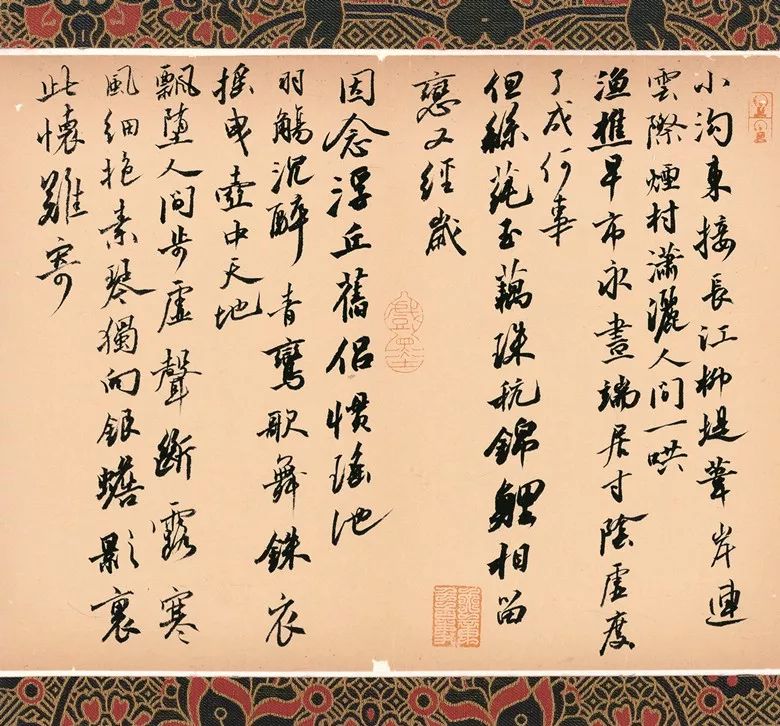 小沟東接長江柳堤葦岸連
雲際煙村瀟灑人間一哄
漁樵早市永晝端居寸陰虛度
了成何事
但絲蓴玉藕珠秔錦鯉相留
戀又經歲
因念浮丘舊侶慣瑤池
羽觴沉醉青鸞歌舞銖衣
搖曳壺中天地
飄墮人間步虛聲斷露寒
風細抱素琴獨向銀蟾影裏
此懷難寄
戲墨